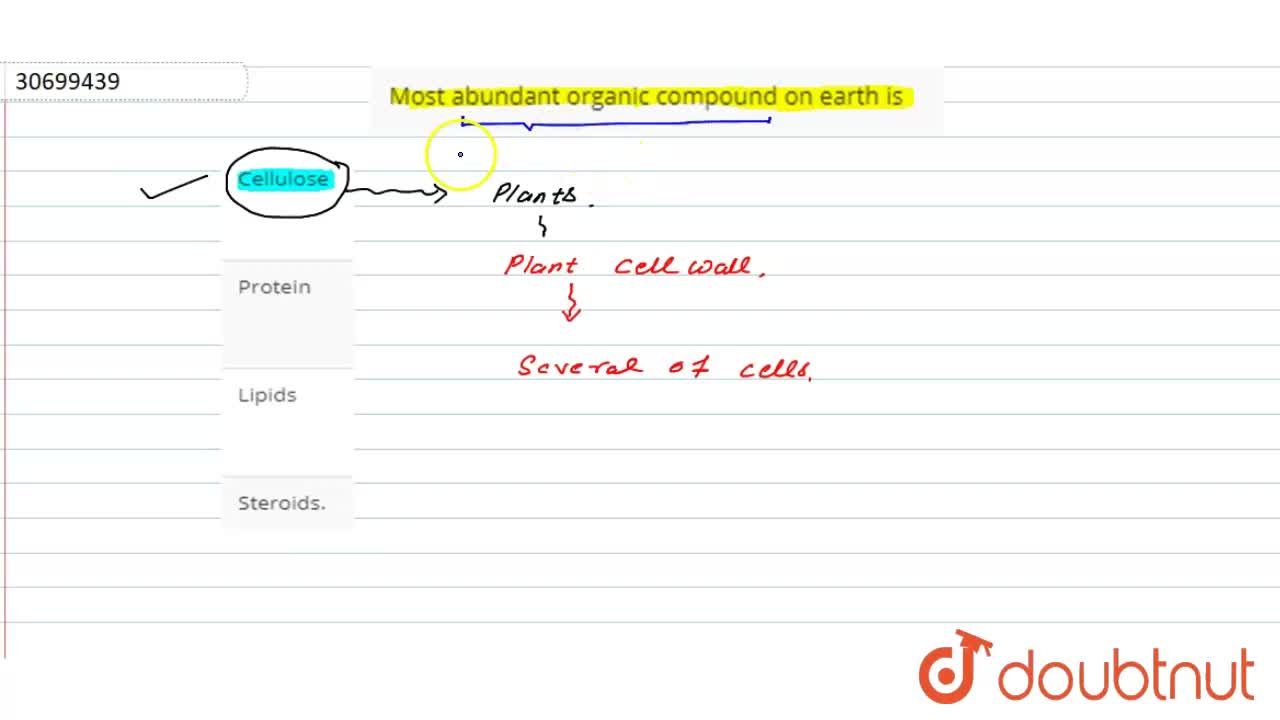 30699439
Most abundant organic compound on earth is
Cellulose
Plants.
Plant cell wall,
Several of cells,
Protein
Lipids
Steroids.
doubtnut